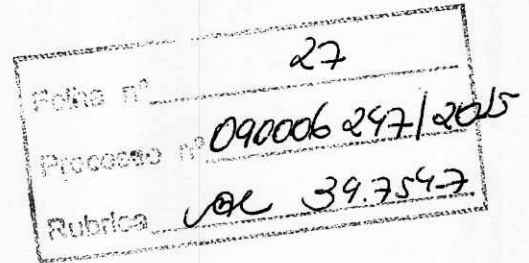 Folha nº 27
Processo nº 090006 247/2015
Rubrica 39.754-7